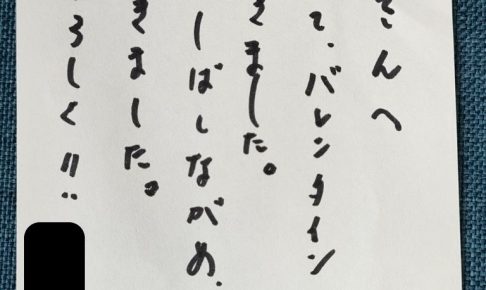 さんへ
て、バレンタイン
きました。
しばしながめ、
きました。
ろしく!!